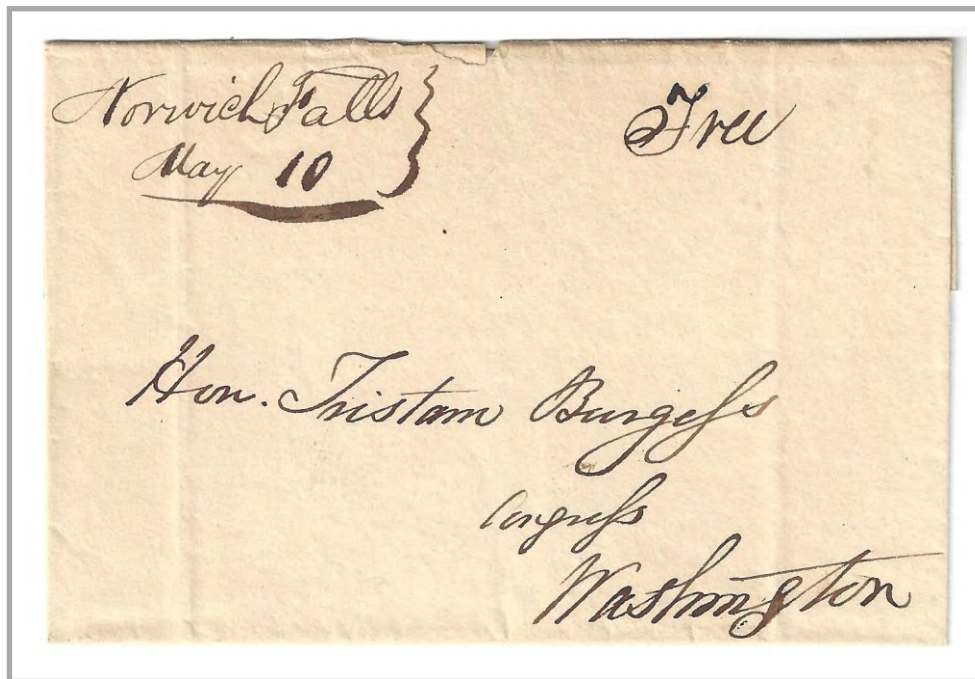 Norwich Falls
May 10
Free
Hon. Tristam Burgeſs
Congreſs
Washington